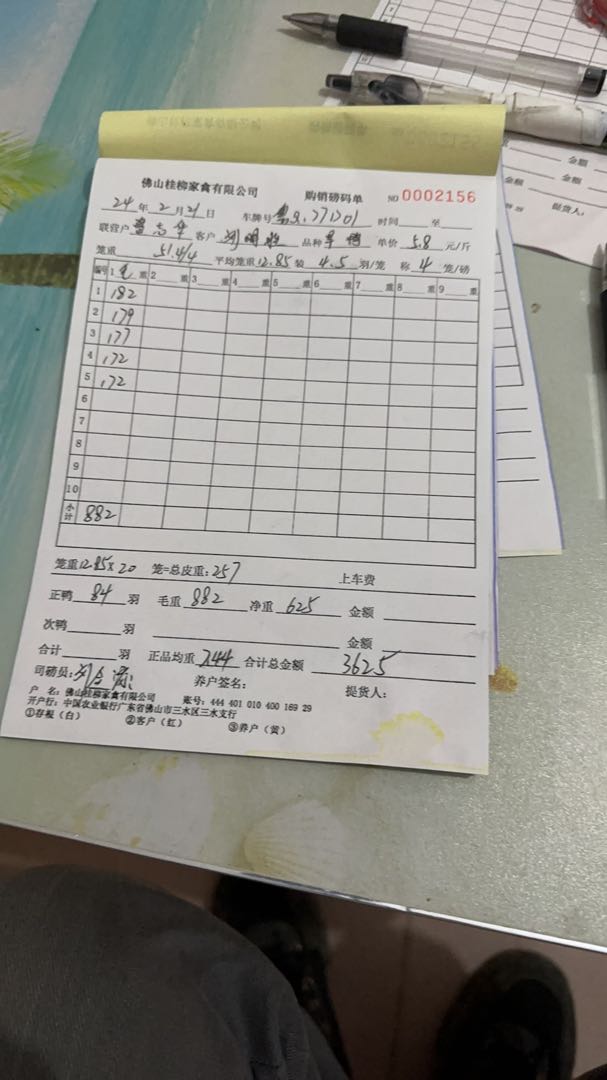 佛山桂柳家禽有限公司 购销磅码单 NO 0002156
24年2月21日 车牌号 时间 至
联营户 客户 品种 单价 5.8 元/斤
笼重 51.4/4 平均笼重12.85 装 4.5 羽/笼 称 4 笼/磅
编号 1 毛 重 2 重 3 重 4 重 5 重 6 重 7 重 8 重 9 重
1 182
2 179
3 177
4 172
5 172
6
7
8
9
10
小计 882
笼重12.85×20 笼=总皮重:257 上车费
正鸭 84 羽 毛重 882 净重 625 金额
次鸭 羽 金额
合计 羽 正品均重 7.44 合计总金额 3625
司磅员: 养户签名: 提货人:
户 名:佛山桂柳家禽有限公司 账号:444 401 010 400 169 29
开户行:中国农业银行广东省佛山市三水区三水支行
①存根(白) ②客户(红) ③养户(黄)
金额
金额
提货人: